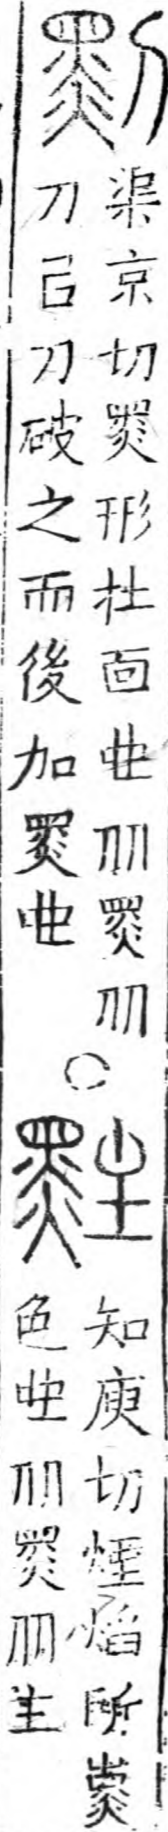 渠京切黑形在面也从黑从
刀㠯刀破之而後加黑也
○
知庚切煙焰所熏
色也从黑从生